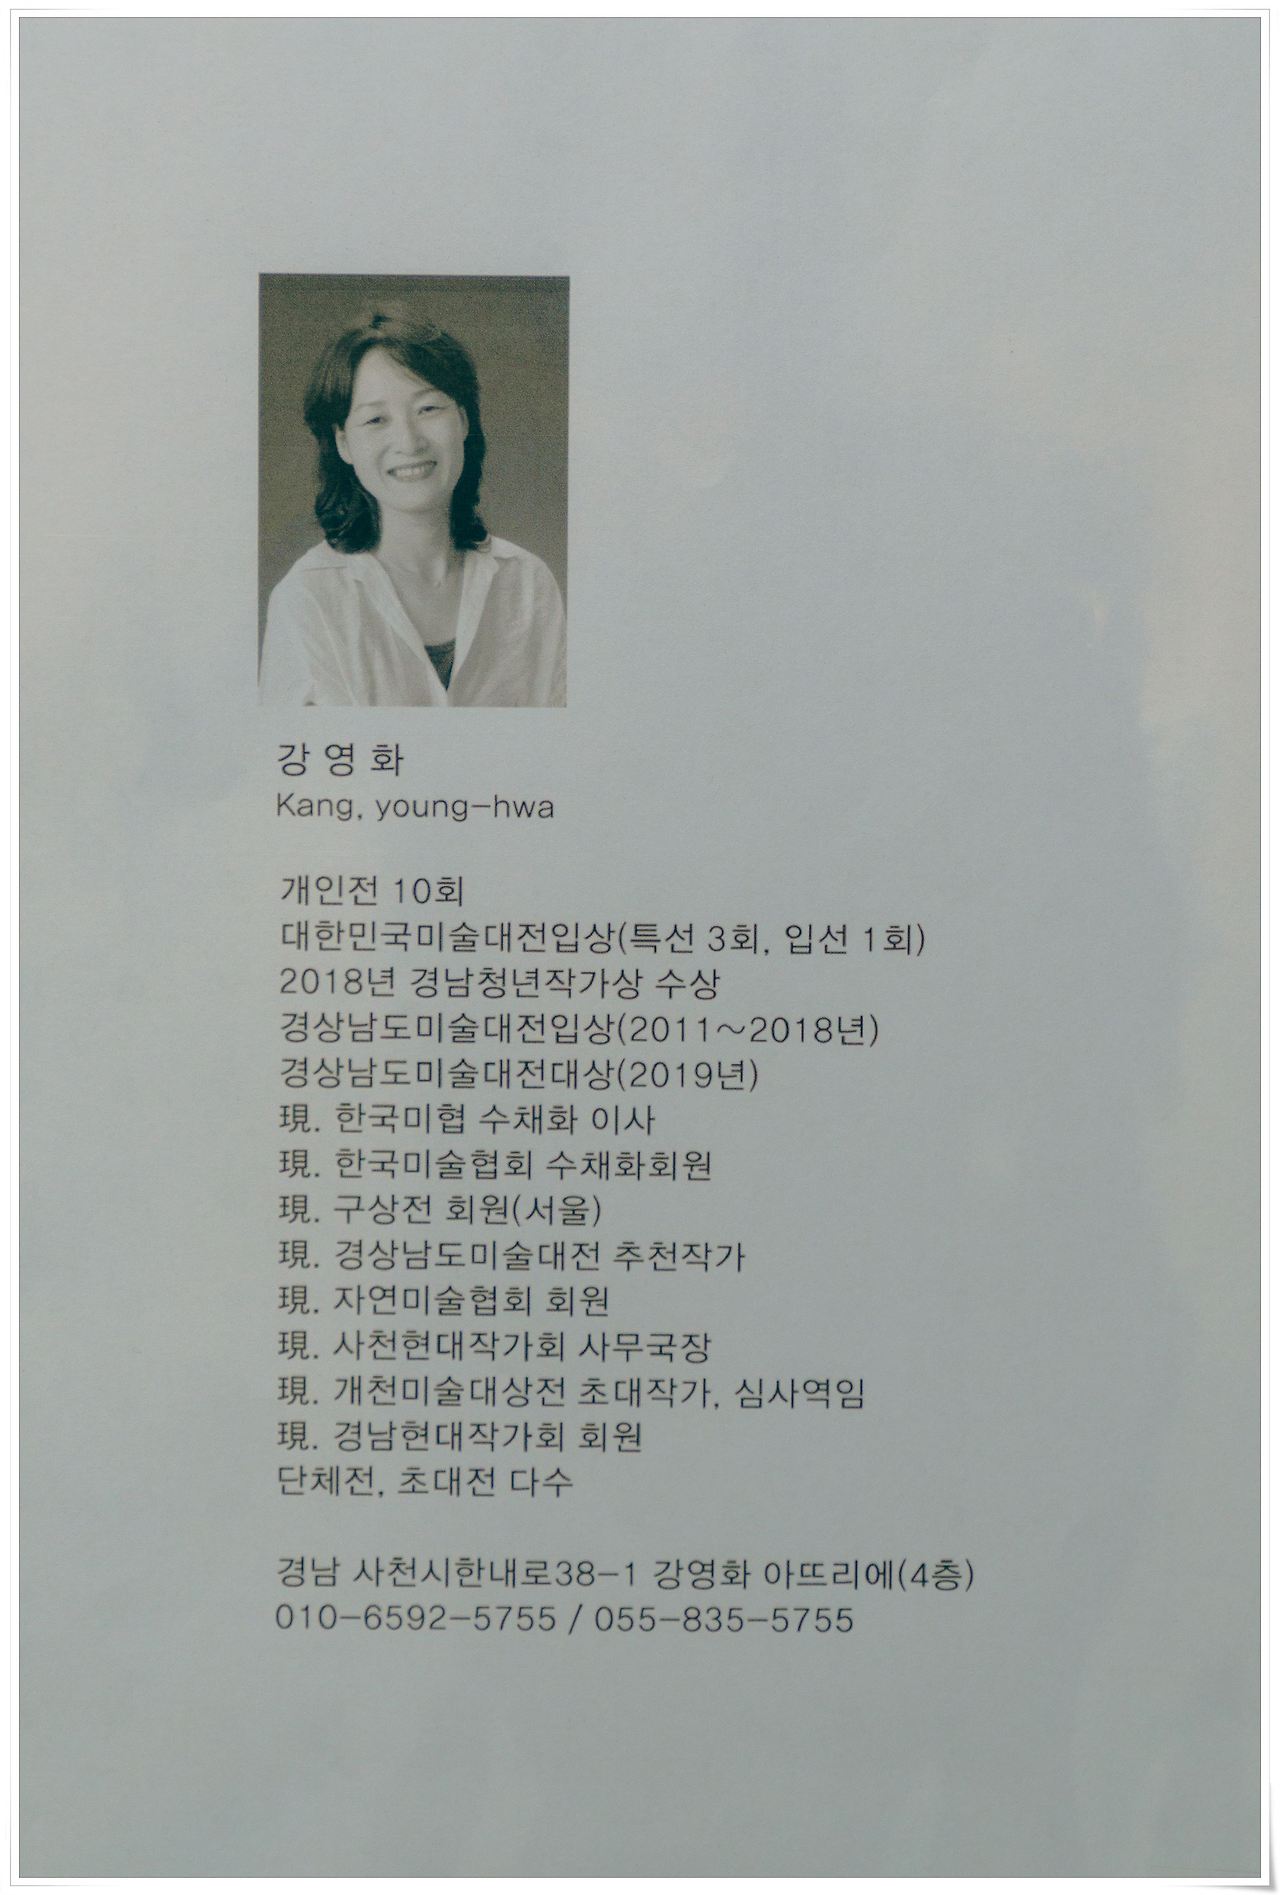 강 영 화
Kang, young-hwa
개인전 10회
대한민국미술대전입상(특선 3회, 입선 1회)
2018년 경남청년작가상 수상
경상남도미술대전입상(2011~2018년)
경상남도미술대전대상(2019년)
現. 한국미협 수채화 이사
現. 한국미술협회 수채화회원
現. 구상전 회원(서울)
現. 경상남도미술대전 추천작가
現. 자연미술협회 회원
現. 사천현대작가회 사무국장
現. 개천미술대상전 초대작가, 심사역임
現. 경남현대작가회 회원
단체전, 초대전 다수
경남 사천시한내로38-1 강영화 아뜨리에(4층)
010-6592-5755 / 055-835-5755